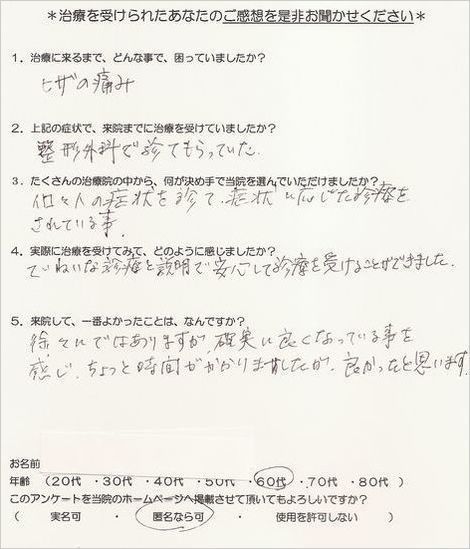 ＊治療を受けられたあなたのご感想を是非お聞かせください＊
1．治療に来るまで、どんな事で、困っていましたか？
ヒザの痛み
2．上記の症状で、来院までに治療を受けていましたか？
整形外科で診てもらっていた.
3．たくさんの治療院の中から、何が決め手で当院を選んでいただけましたか？
個々人の症状を診て、症状に応じた診療を
されている事.
4．実際に治療を受けてみて、どのように感じましたか？
ていねいな診療と説明で安心して診療を受けることができました.
5．来院して、一番よかったことは、なんですか？
徐々にではありますが、確実に良くなっている事を
感じ、ちょっと時間がかかりましたが、良かったと思います.
お名前
年齢 （20代 ・30代 ・40代 ・50代 ・60代 ・70代 ・80代 ）
このアンケートを当院のホームページへ掲載させて頂いてもよろしいですか？
（ 実名可 ・ 匿名なら可 ・ 使用を許可しない ）